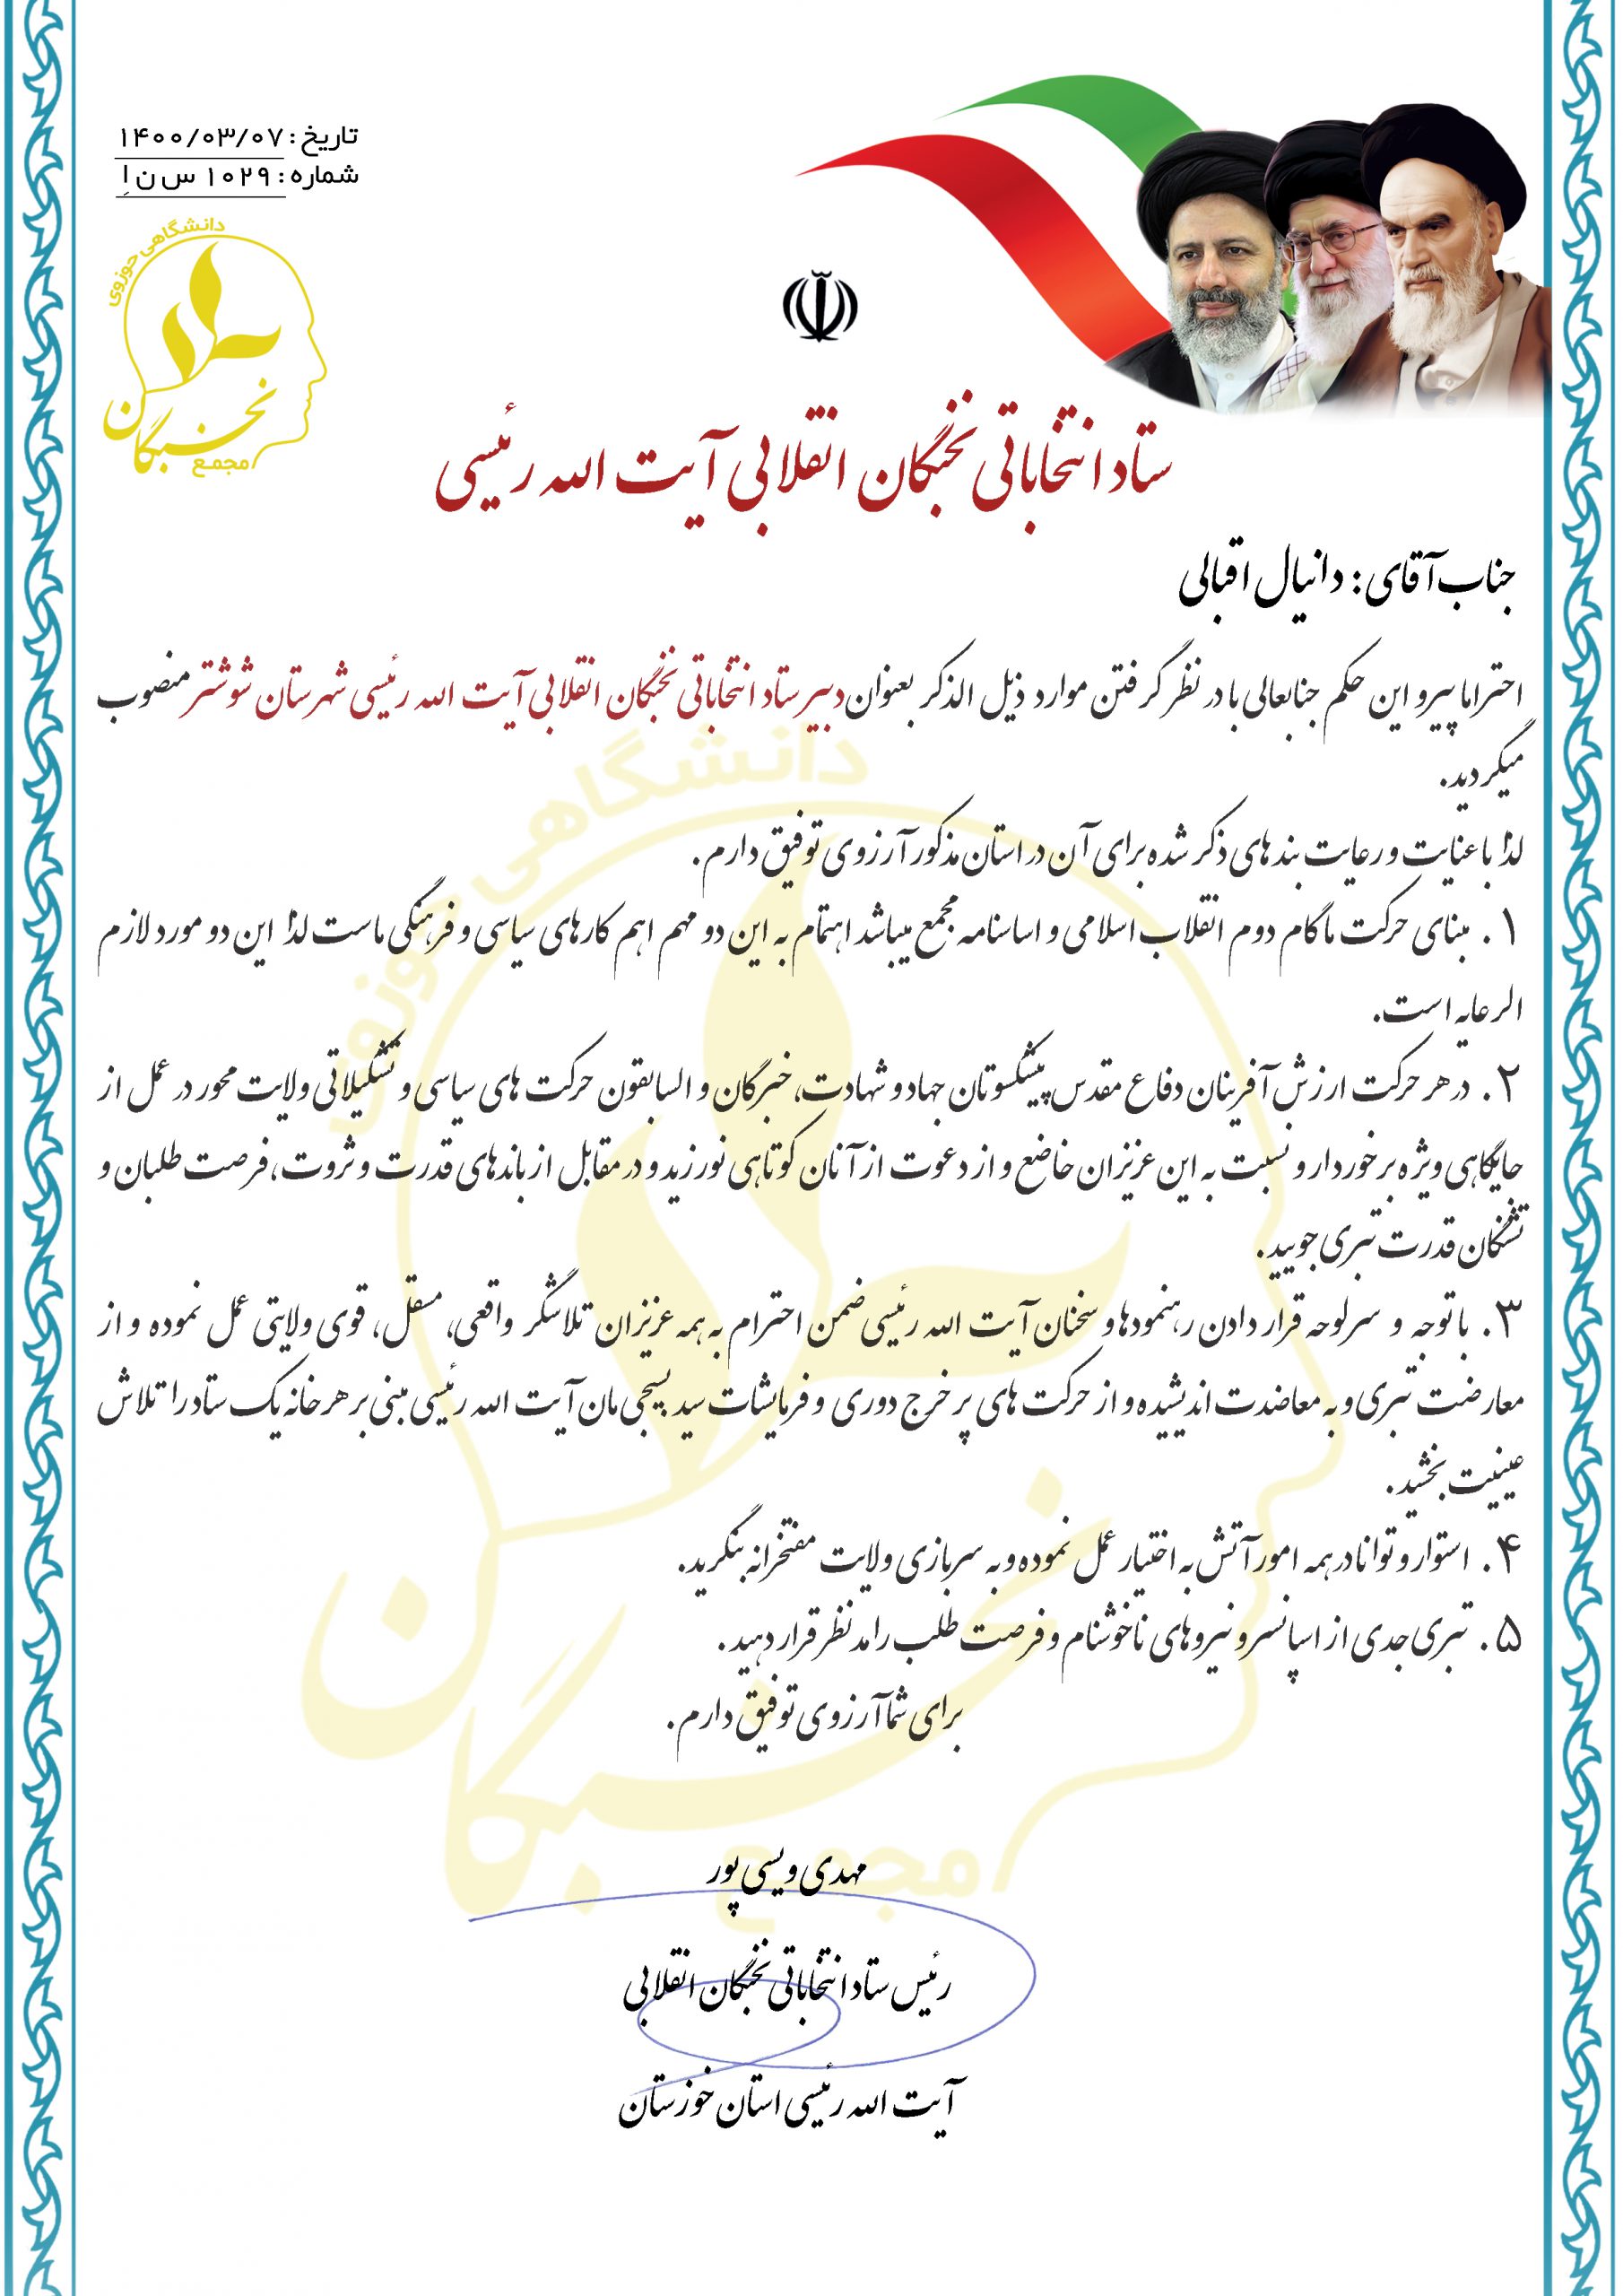 تاریخ: ۱۴۰۰/۰۳/۰۷
شماره: ۱۰۲۹ س ن اِ
دانشگاهی حوزوی
نخبگان
مجمع
ستاد انتخاباتی نخبگان انقلابی آیت الله رئیسی
جناب آقای: دانیال اقبالی
احتراما پیرو این حکم جنابعالی با در نظر گرفتن موارد ذیل الذکر بعنوان دبیر ستاد انتخاباتی نخبگان انقلابی آیت الله رئیسی شهرستان شوشتر منصوب
میگردید.
لذا با عنایت و رعایت بندهای ذکر شده برای آن در استان مذکور آرزوی توفیق دارم.
۱. مبنای حرکت ما گام دوم انقلاب اسلامی و اساسنامه مجمع میباشد اهتمام به این دو مهم اهم کارهای سیاسی و فرهنگی ماست لذا این دو مورد لازم
الرعایه است.
۲. در هر حرکت ارزش آفرینان دفاع مقدس پیشکسوتان جهاد و شهادت، خبرگان و السابقون حرکت های سیاسی و تشکیلاتی ولایت محور در عمل از
جایگاهی ویژه برخوردار و نسبت به این عزیزان خاضع و از دعوت از آنان کوتاهی نورزید و در مقابل از باندهای قدرت و ثروت، فرصت طلبان و
تشنگان قدرت تبری جویید.
۳. با توجه و سرلوحه قرار دادن رهنمودها و سخنان آیت الله رئیسی ضمن احترام به همه عزیزان تلاشگر واقعی، مستقل، قوی ولایتی عمل نموده و از
معارضت تبری و به معاضدت اندیشیده و از حرکت های پر خرج دوری و فرمایشات سید بسیجی مان آیت الله رئیسی مبنی بر هر خانه یک ستاد را تلاش
عینیت بخشید.
۴. استوار و توانا در همه امور آتش به اختیار عمل نموده و به سربازی ولایت مفتخرانه بنگرید.
۵. تبری جدی از اسپانسر و نیروهای ناخوشنام و فرصت طلب را مد نظر قرار دهید.
برای شما آرزوی توفیق دارم.
مهدی ویسی پور
رئیس ستاد انتخاباتی نخبگان انقلابی
آیت الله رئیسی استان خوزستان